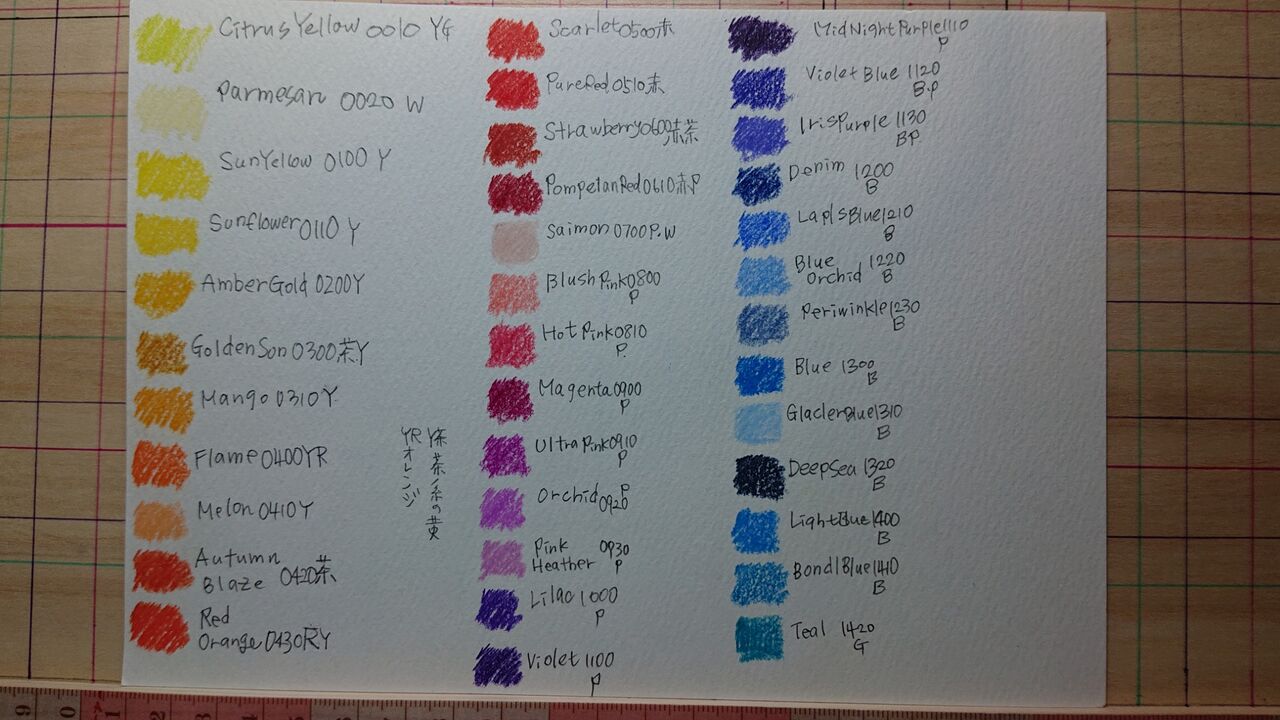 Citrus Yellow 0010 YG
Parmesan 0020 W
Sun Yellow 0100 Y
Sunflower 0110 Y
Amber Gold 0200Y
Golden Son 0300茶Y
Mango 0310Y
Flame 0400YR
Melon 0410Y
Autumn
Blaze 0420茶
Red
Orange 0430RY
Y茶 茶系の黄
YRオレンジ
Scarlet 0500赤
Pure Red 0510赤
Strawberry 0600赤茶
Pompetan Red 0610赤P
Saimon 0700P.W
Blush Pink 0800
P
Hot Pink 0810
P.
Magenta 0900
P
Ultra Pink 0910
P
Orchid 0920
P
Pink 0930
Heather P
Lilac 1000
P
Violet 1100
P
MidNight Purple 1110
P
Violet Blue 1120
B.P
Iris Purple 1130
BP.
Denim 1200
B
LapIs Blue 1210
B
Blue 1220
Orchid B
Periwinkle 1230
B
Blue 1300
B
GlacIer Blue 1310
B
Deep Sea 1320
B
Light Blue 1400
B
BondI Blue 1410
B
Teal 1420
G
9
0
1
2
3
4
5